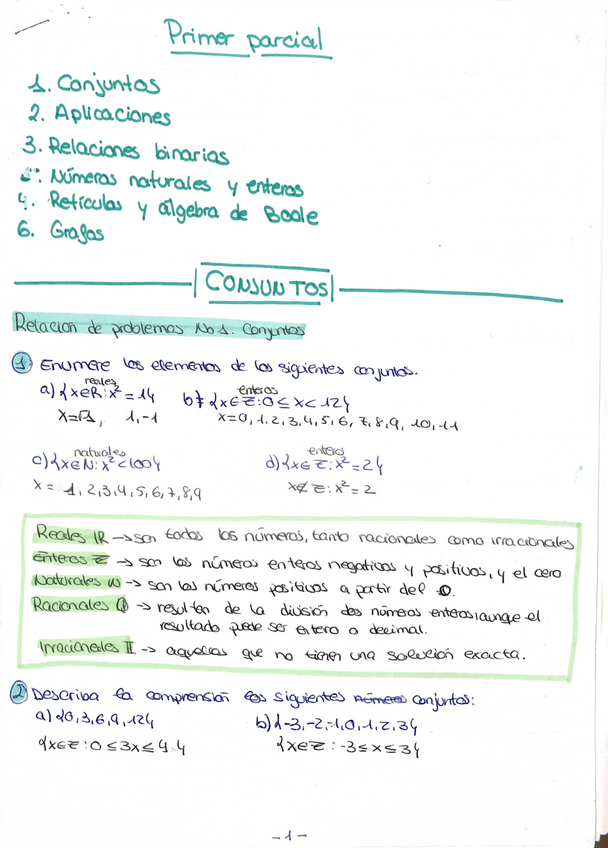 Primer parcial
1. Conjuntos
2. Aplicaciones
3. Relaciones binarias
Números naturales y enteros
4. Retículas y álgebra de Boole
6. Grafos
CONJUNTOS
Relación de problemas No1. Conjuntos
1 Enumere los elementos de los siguientes conjuntos.
reales enteros
a) {x∈R: x² = 1} b) {x∈Z: 0 ≤ x < 12}
x=√1, 1, -1 x=0, 1, 2, 3, 4, 5, 6, 7, 8, 9, 10, 11
naturales enteros
c) {x∈N: x² < 100} d) {x∈Z: x² = 2}
x = 1, 2, 3, 4, 5, 6, 7, 8, 9 x∉Z: x² = 2
Reales IR → son todos los números, tanto racionales como irracionales
Enteros Z → son los números enteros negativos y positivos, y el cero
Naturales N → son los números positivos a partir del 0.
Racionales Q → resultan de la división dos números enteros, aunque el
resultado puede ser entero o decimal.
Irracionales II → aquellos que no tienen una solución exacta.
2 Describa la comprensión los siguientes conjuntos:
a) {0, 3, 6, 9, 12} b) {-3, -2, -1, 0, 1, 2, 3}
{x∈Z: 0 ≤ 3x ≤ {x∈Z: -3 ≤ x ≤ 3}
-1-